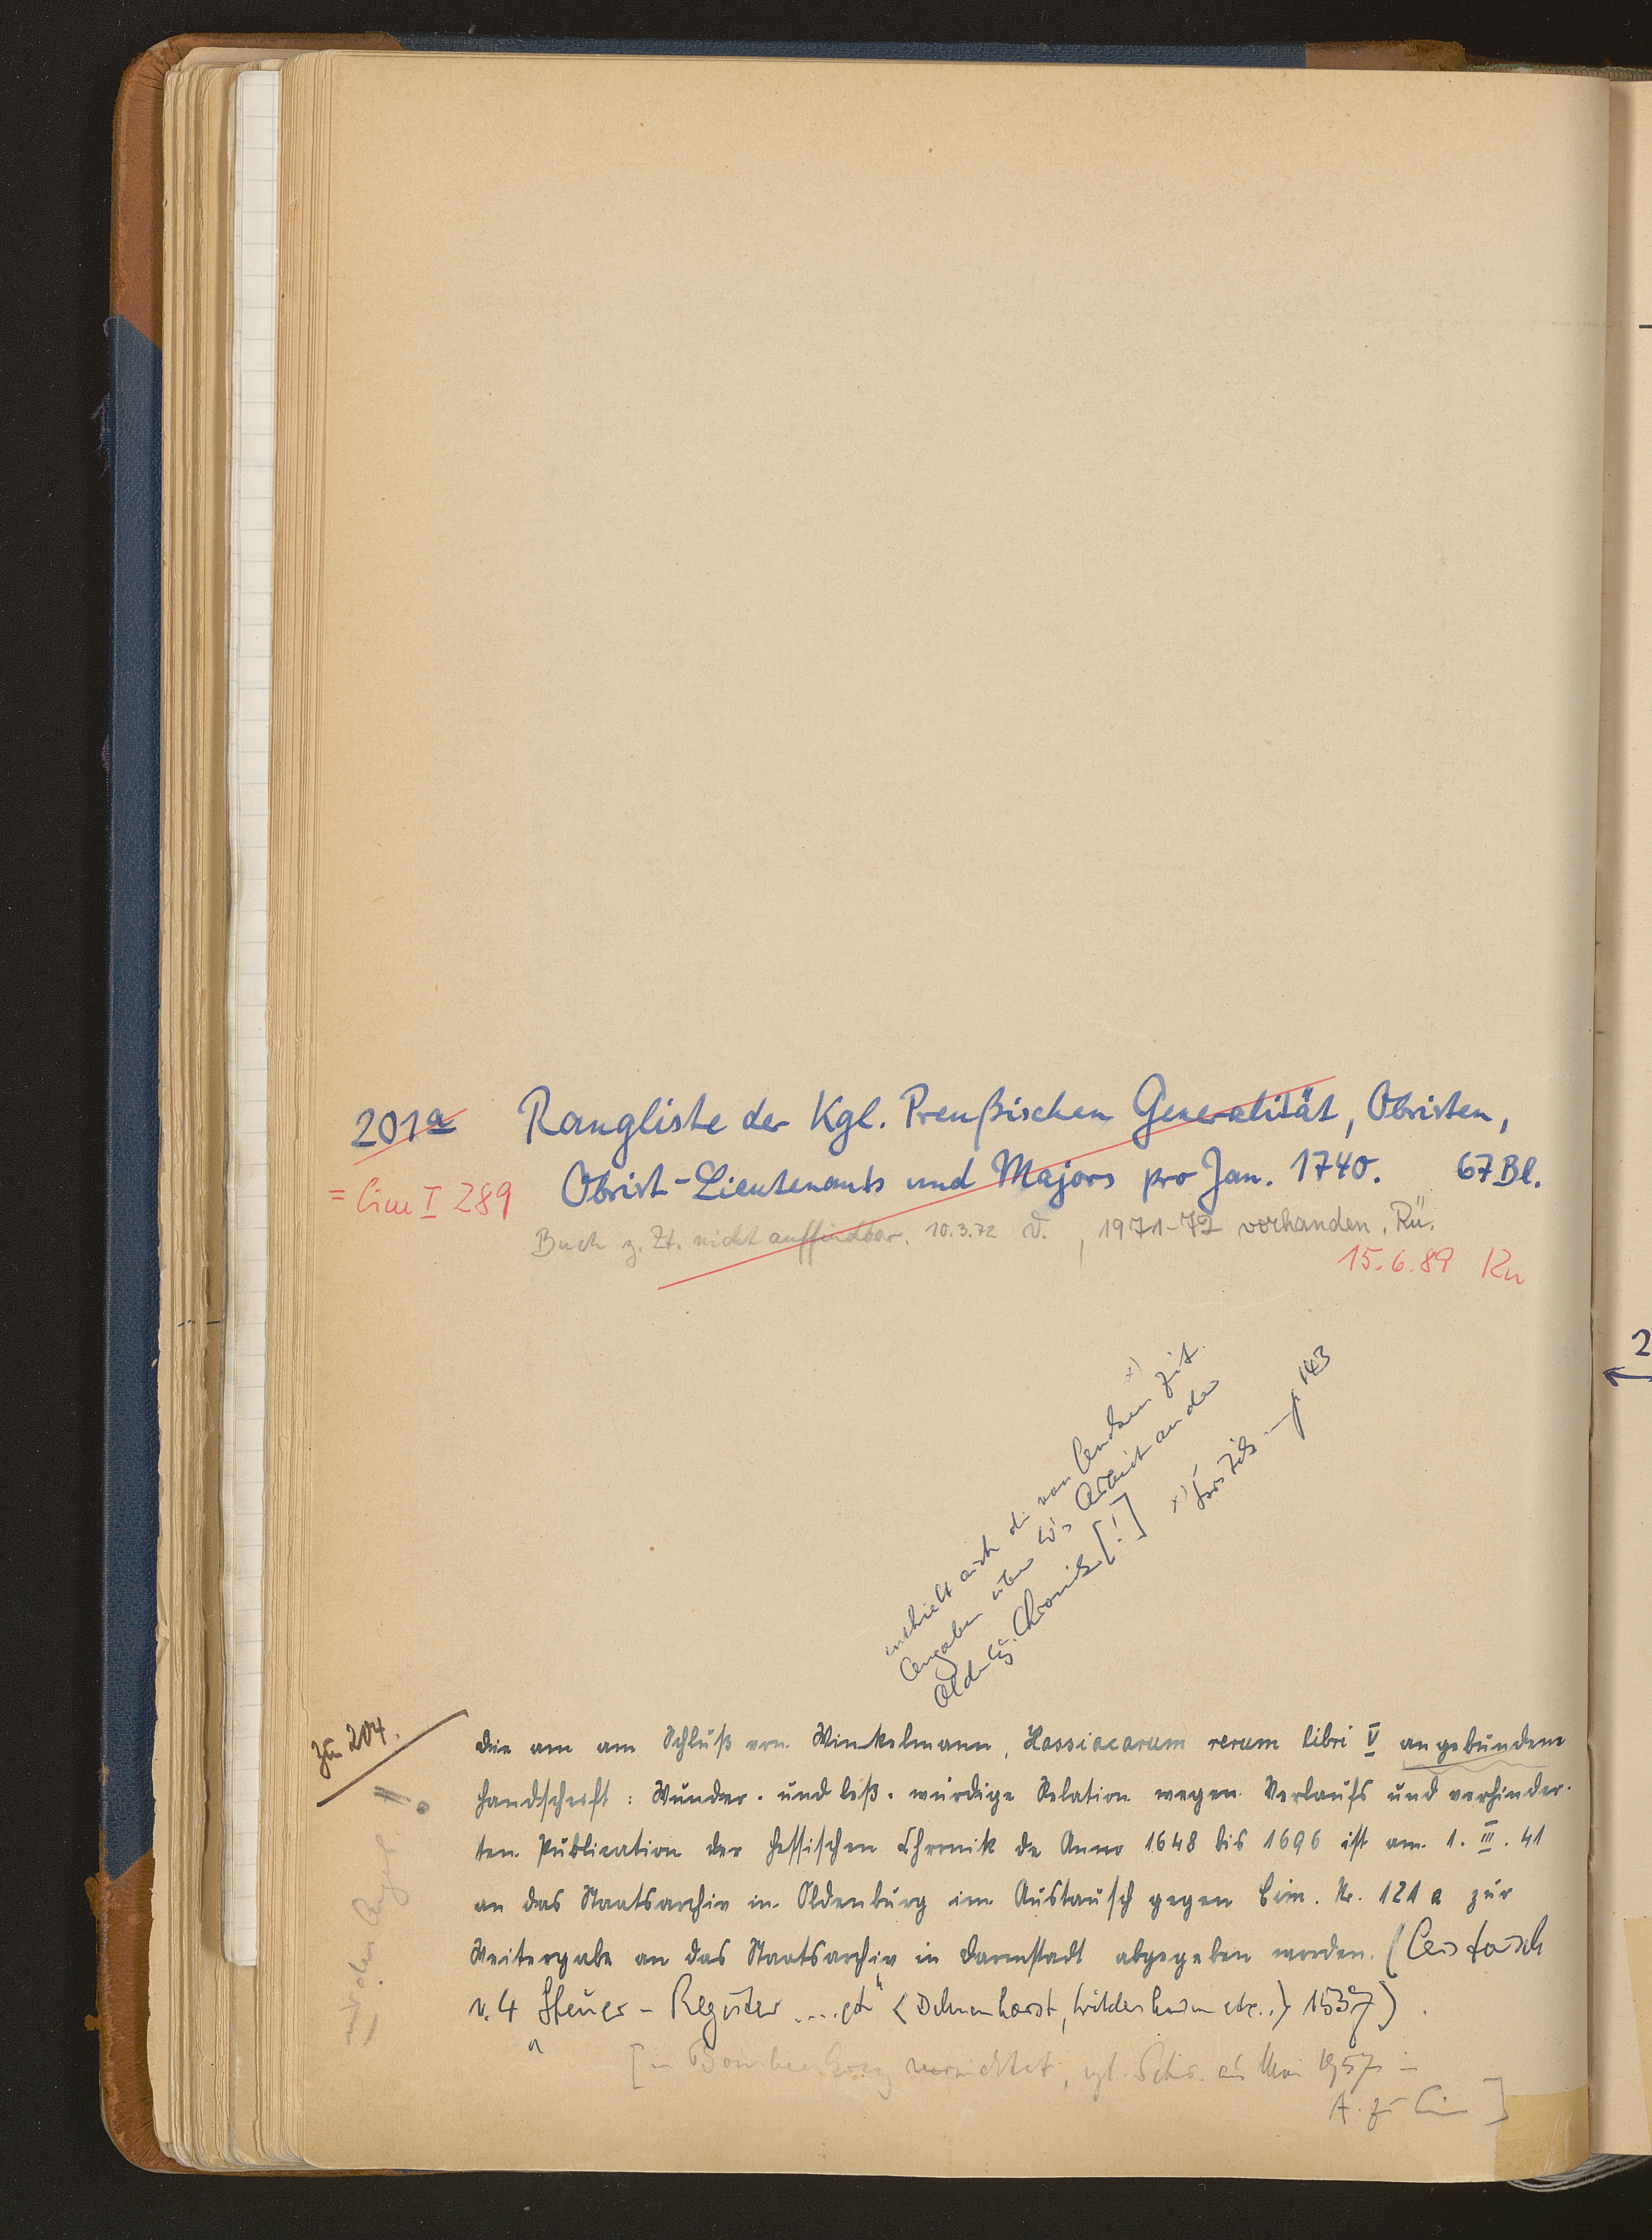 201a Rangliste der Kgl. Preußischen Generalität, Obristen,
= Cim I 289 Obrist-Lieutenants und Majors pro Jan. 1740. 67 Bl.
Buch z. Zt. nicht auffindbar. 10.3.72 , 1971-72 vorhanden. Rü.
15.6.89 Kn
enthielt auch die von zit.
Angaben über W's Arbeit an der
Oldenbg. Chronik [!]
x) p 143
zu 204. Die am am Schluß von Winkelmann, Hassiacarum rerum libri V angebundene
Handschrift: Wunder- und leß-würdige Relation wegen Verlaufs und verhinder-
ten Publication der Hessischen Chronik de Anno 1648 bis 1696 ist am 1. III. 41
an das Staatsarchiv in Oldenburg im Austausch gegen Cim. Nr. 121 a zur
Weitergabe an das Staatsarchiv in Darmstadt abgegeben worden. (
v. 4 Steuer-Register .... " <Delmenhorst, Wildeshausen etc..> 1537).
[im Bombenkrieg vernichtet, vgl. Schr. aus Mai 1957 in
A. zu Cim ]
2